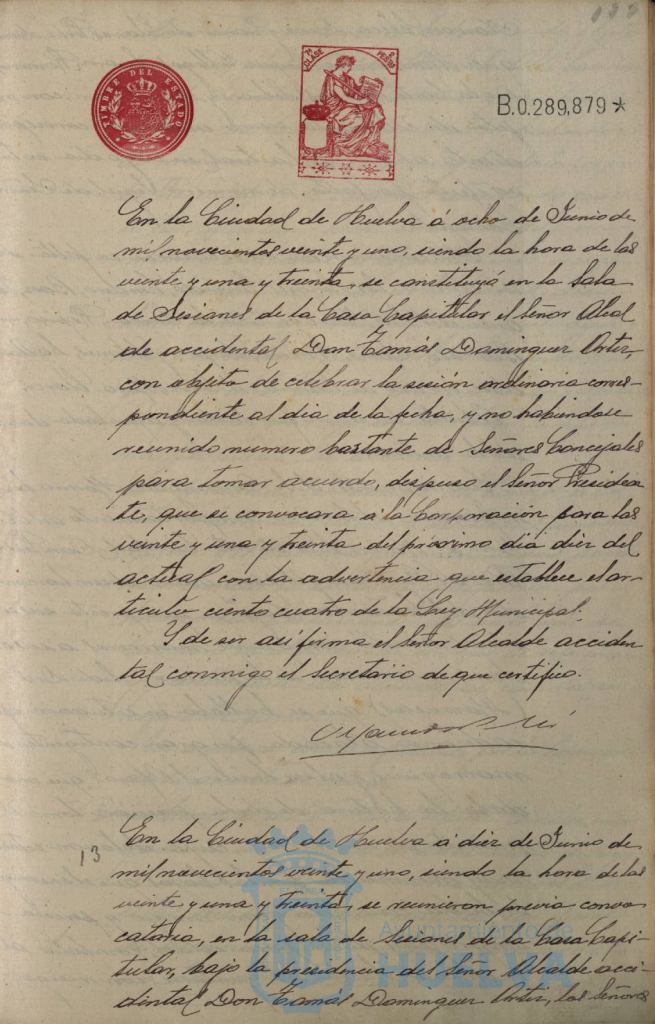 133
TIMBRE DEL ESTADO
7ª CLASE 2 PESETAS
B.0.289,879*
En la Ciudad de Huelva á ocho de Junio de
mil novecientos veinte y uno, siendo la hora de las
veinte y una y treinta, se constituyó en la Sala
de Sesiones de la Casa Capitular, el Señor Alcal
de accidental Don Tomás Dominguez Ortiz,
con objeto de celebrar la sesión ordinaria corres-
pondiente al dia de la fecha, y no habiéndose
reunido numero bastante de Señores Concejales
para tomar acuerdo, dispuso el Señor Presiden
te, que se convocara á la Corporación para las
veinte y una y treinta del próximo dia diez del
actual con la advertencia que establece el ar-
ticulo ciento cuatro de la Ley Municipal.
Y de ser asi firma el Señor Alcalde acciden
tal conmigo el Secretario de que certifico.
13
En la Ciudad de Huelva á diez de Junio de
mil novecientos veinte y uno, siendo la hora de las
veinte y una y treinta, se reunieron previa convo
catoria, en la sala de Sesiones de la Casa Capi-
tular, bajo la presidencia del Señor Alcalde acci-
dental Don Tomás Dominguez Ortiz, los Señores
Ayuntamiento de
HUELVA